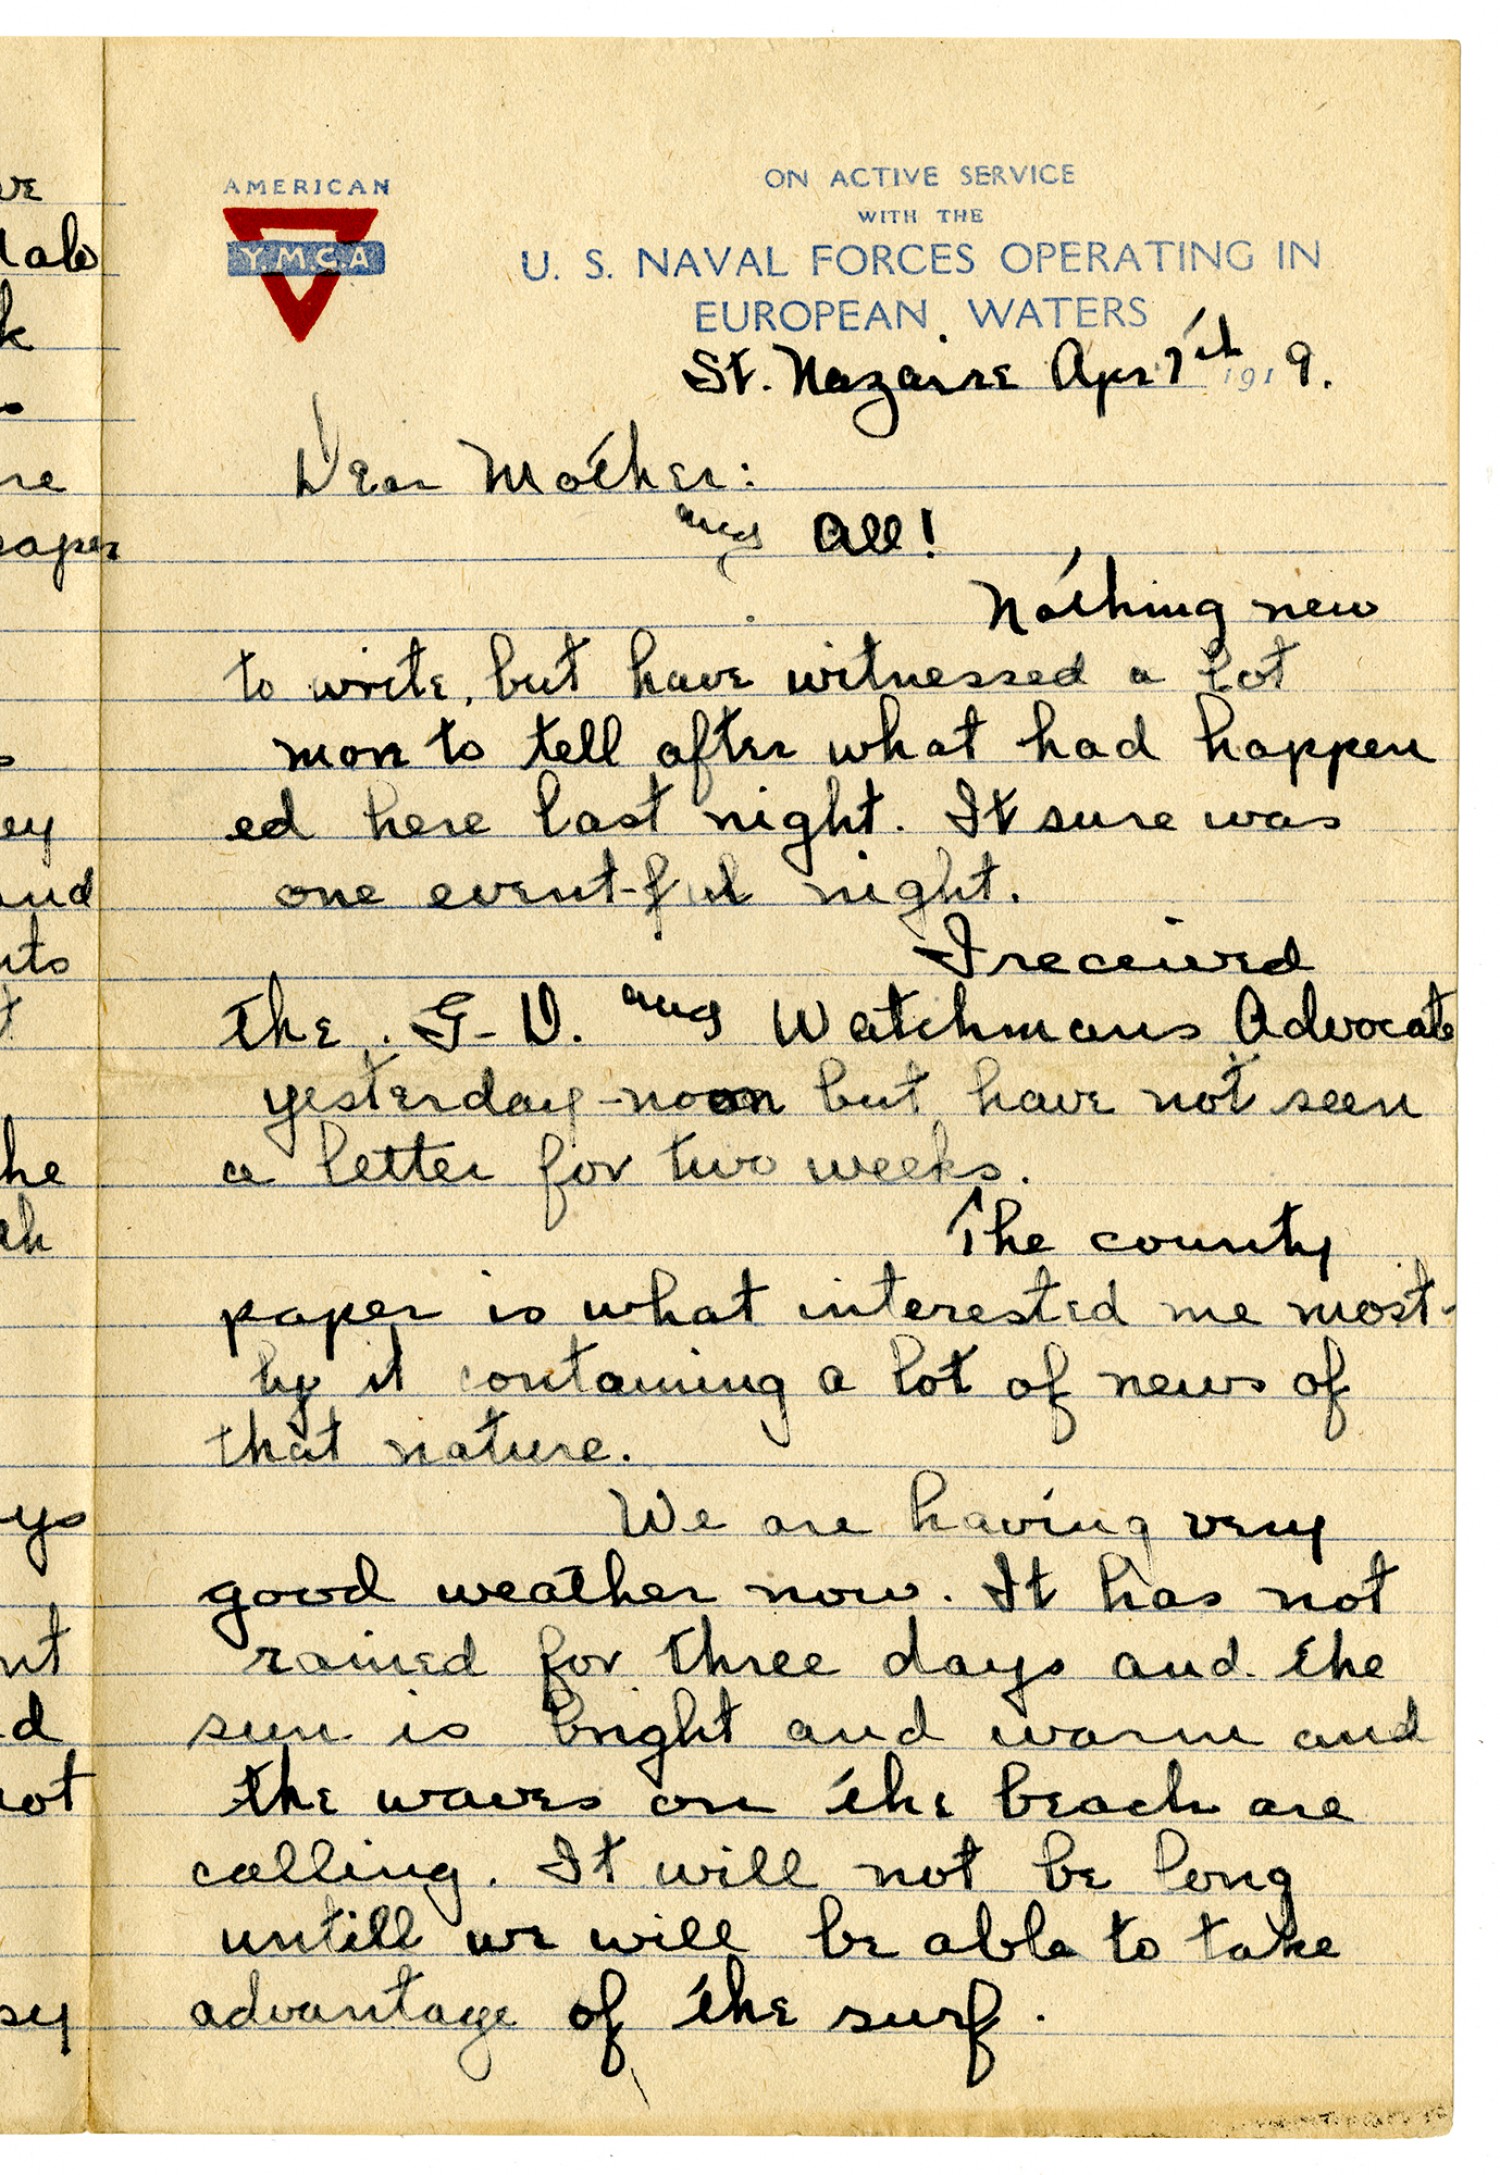 AMERICAN
Y.M.C.A
ON ACTIVE SERVICE
WITH THE
U. S. NAVAL FORCES OPERATING IN
EUROPEAN WATERS
St. Nazaire Apr 7th 1919.
Dear Mother:
and All!
Nothing new
to write, but have witnessed a lot
more to tell after what had happen
ed here last night. It sure was
one event-ful night.
I received
the G-D. and Watchmans Advocate
yesterday-noon but have not seen
a letter for two weeks.
The county
paper is what interested me most-
by it containing a lot of news of
that nature.
We are having very
good weather now. It has not
rained for three days and the
sun is bright and warm and
the waves on the beach are
calling. It will not be long
untill we will be able to take
advantage of the surf.